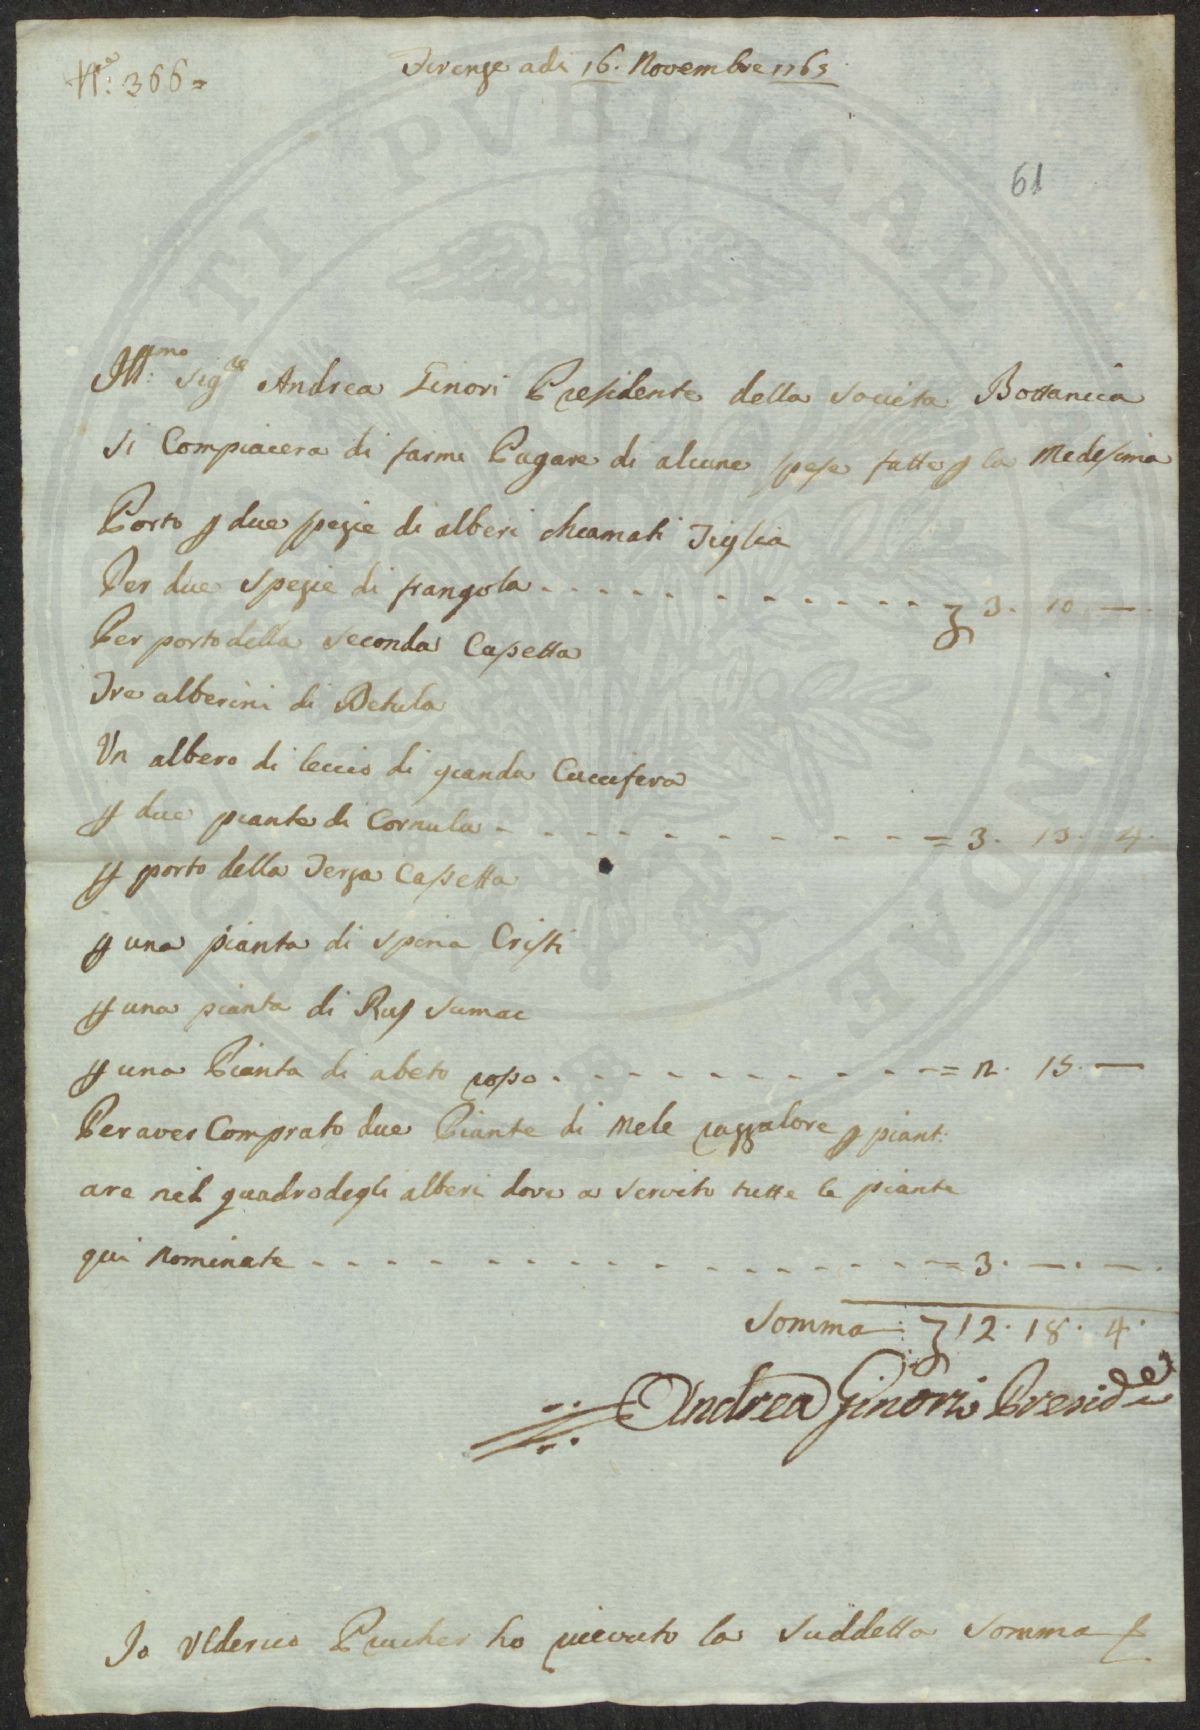 N.º: 366=
Firenze adi 16. Novembre 1763
61
Ill:mo Sig:re Andrea Ginori Presidente della Società Bottanica
si Compiacera di farmi Pagare di alcune spese fatte p la Medesima
Porto p due spezie di alberi chiamati Tiglia
Per due Spezie di frangola - - - - - - - - - - - - 3. 10. —.
Per porto della Seconda Casetta
Tre alberini di Betula
Un albero di leccio di gianda Cuccifera
p due piante di Cornula - - - - - - - - - - - = 3. 13. 4.
p porto della Terza Casetta
p una pianta di Spina Cristi
p una pianta di Rus Sumac
p una Pianta di abeto roso - - - - - - - - - - = 2. 15. —
Per aver Comprato due Piante di Mele p piant:
are nel quadro degli alberi dove a servito tutte le piante
qui Nominate - - - - - - - - - - - - - - - - = 3. —. —.
Somma 12. 18. 4.
Andrea Ginori Preside
Io Ulderico Prucher ho ricevuto la Suddetta Somma
PUBLICAE